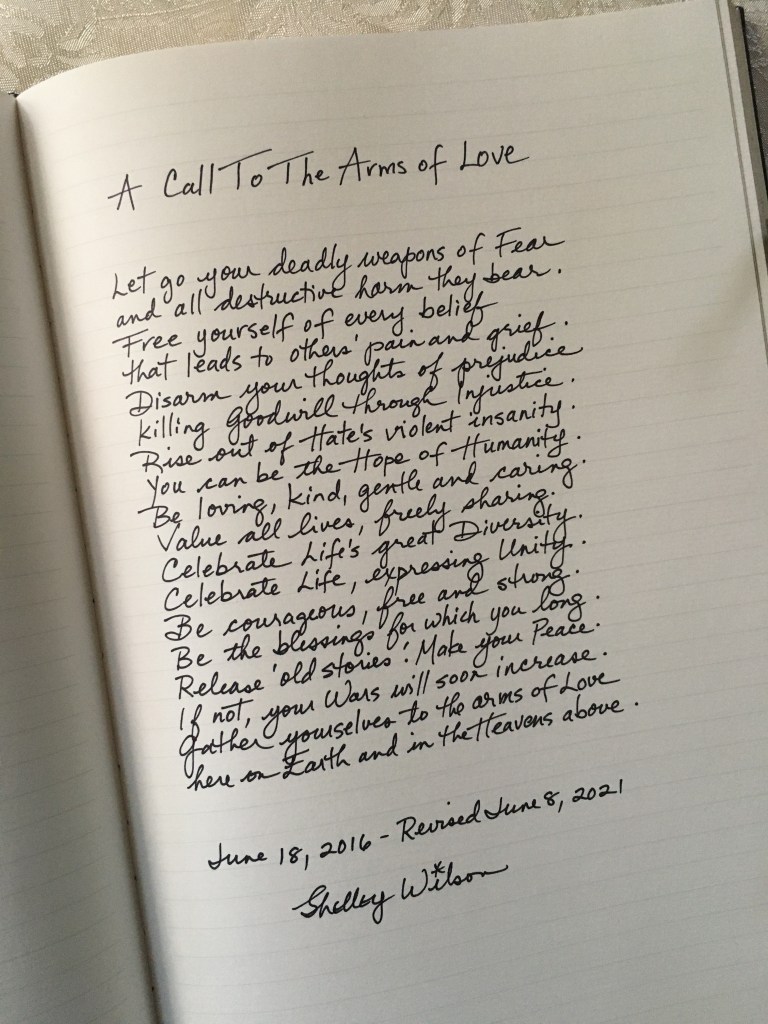 A Call To The Arms of Love
Let go your deadly weapons of Fear
and all destructive harm they bear.
Free yourself of every belief
that leads to others' pain and grief.
Disarm your thoughts of prejudice
killing Goodwill through Injustice.
Rise out of Hate's violent insanity.
You can be the Hope of Humanity.
Be loving, kind, gentle and caring.
Value all lives, freely sharing.
Celebrate Life's great Diversity.
Celebrate Life, expressing Unity.
Be courageous, free and strong.
Be the blessings for which you long.
Release 'old stories'. Make your Peace.
If not, your Wars will soon increase.
Gather yourselves to the arms of Love
here on Earth and in the Heavens above.
June 18, 2016 - Revised June 8, 2021
Shelley Wilson